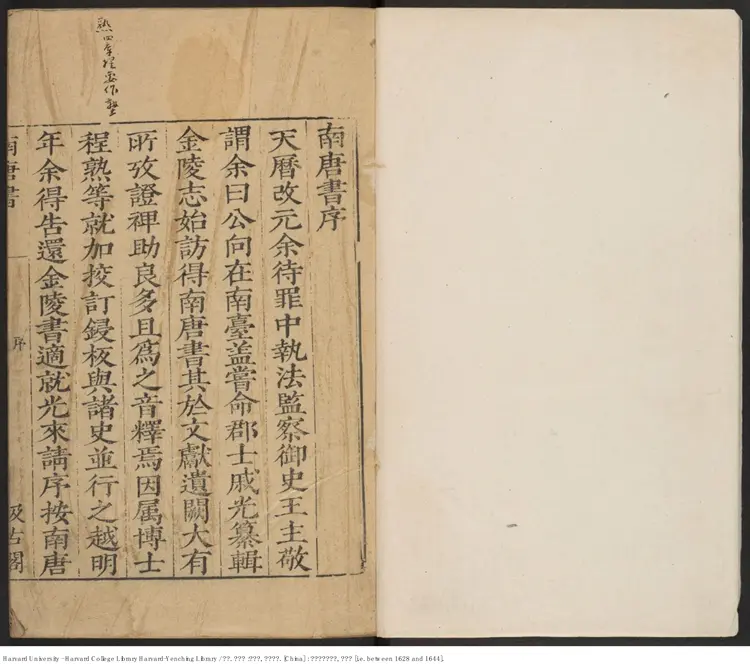 南唐書序
天曆改元余待罪中執法監察御史王主敬
謂余曰公向在南臺葢嘗命郡士戚光纂輯
金陵志始訪得南唐書其於文獻遺闕大有
所攷證裨助良多且爲之音釋焉因属博士
程熟等就加挍訂鋟板與諸史並行之越明
年余得告還金陵書適就光來請序按南唐
南唐書
序
汲古閣
熟四庫提要作塾
Harvard University - Harvard College Library Harvard-Yenching Library / ??. ??? :???, ????. [China] : ???????, ??? [i.e. between 1628 and 1644].